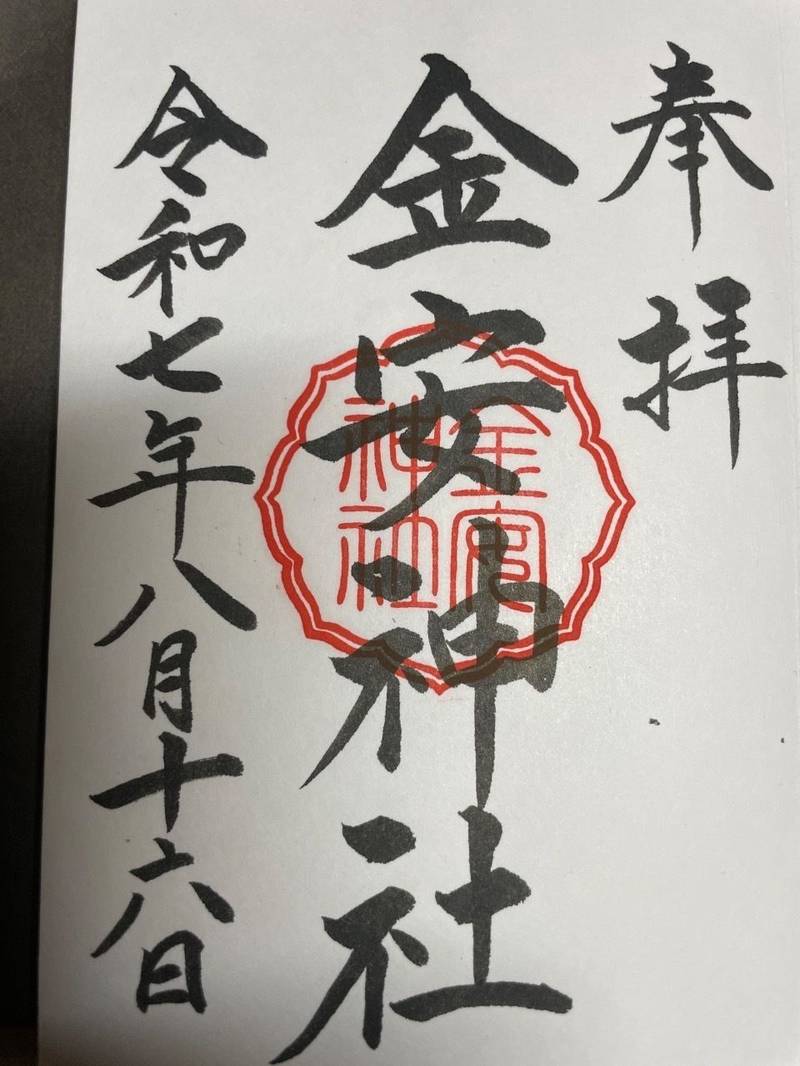 奉拝
金安神社
金
神社
令和七年八月十六日